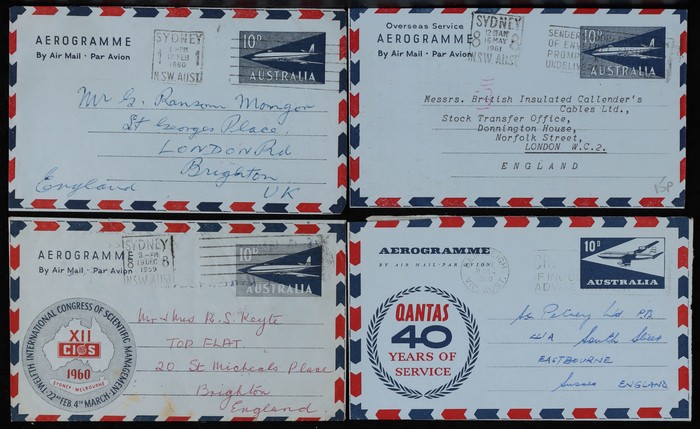 AEROGRAMME
By Air Mail · Par Avion
SYDNEY
1 1
1960
N.S.W. AUST.
10D
AUSTRALIA
Mr G. Ransom Mongor
St Georges Place,
LONDON Rd
Brighton
England
UK
Overseas Service
AEROGRAMME
By Air Mail · Par Avion
SYDNEY
12 30 AM
8 8
16 MAY
1961
N.S.W. AUST.
SENDER
OF ENV
PROMP
UNDELI
10D
AUSTRALIA
Messrs. British Insulated Callender's
Cables Ltd.,
Stock Transfer Office,
Donnington House,
Norfolk Street,
LONDON W.C.2.
ENGLAND
15P
AEROGRAMME
By Air Mail · Par Avion
SYDNEY
8 8
19 DEC
1959
N.S.W. AUST.
10D
AUSTRALIA
TWELFTH INTERNATIONAL CONGRESS OF SCIENTIFIC MANAGEMENT
XII
CIOS
1960
SYDNEY-MELBOURNE
22ND FEB. 4TH MARCH
Mr & Mrs R. S. Keyte
TOP FLAT
20 St Micheals Place
Brighton
England
AEROGRAMME
BY AIR MAIL · PAR AVION
10D
AUSTRALIA
QANTAS
40
YEARS OF
SERVICE
Pitney Ltd
South Street
EASTBOURNE
Sussex ENGLAND